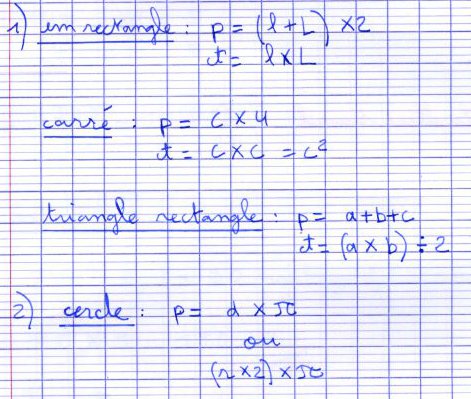 1) un rectangle : p = (l+L) ×2
t = l×L
carré : p = c × 4
t = c×c = c²
triangle rectangle : p = a+b+c
t = (a × b) ÷ 2
2) cercle : p = d × π
ou
(r ×2) × π